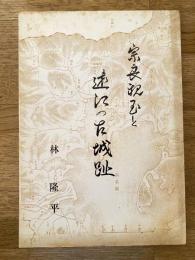 宗良親王と
遠江の古城趾
林隆平